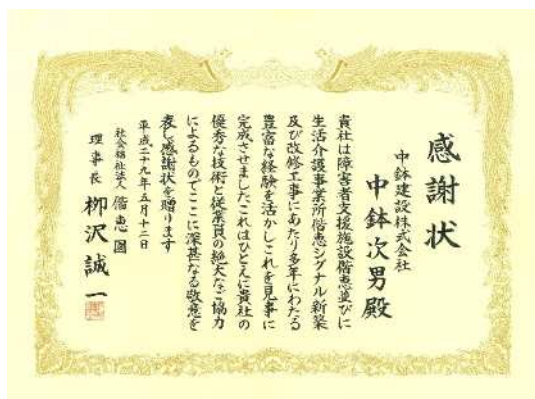 感謝状
中鉢建設株式会社
中鉢次男殿
貴社は障害者支援施設偕恵並びに
生活介護事業所偕恵シグナル新築
及び改修工事にあたり多年にわたる
豊富な経験を活かしこれを見事に
完成させましたこれはひとえに貴社の
優秀な技術と従業員の絶大なご協力
によるものでここに深甚なる敬意を
表し感謝状を贈ります
平成二十九年五月十二日
社会福祉法人 偕恵園
理事長 柳沢誠一